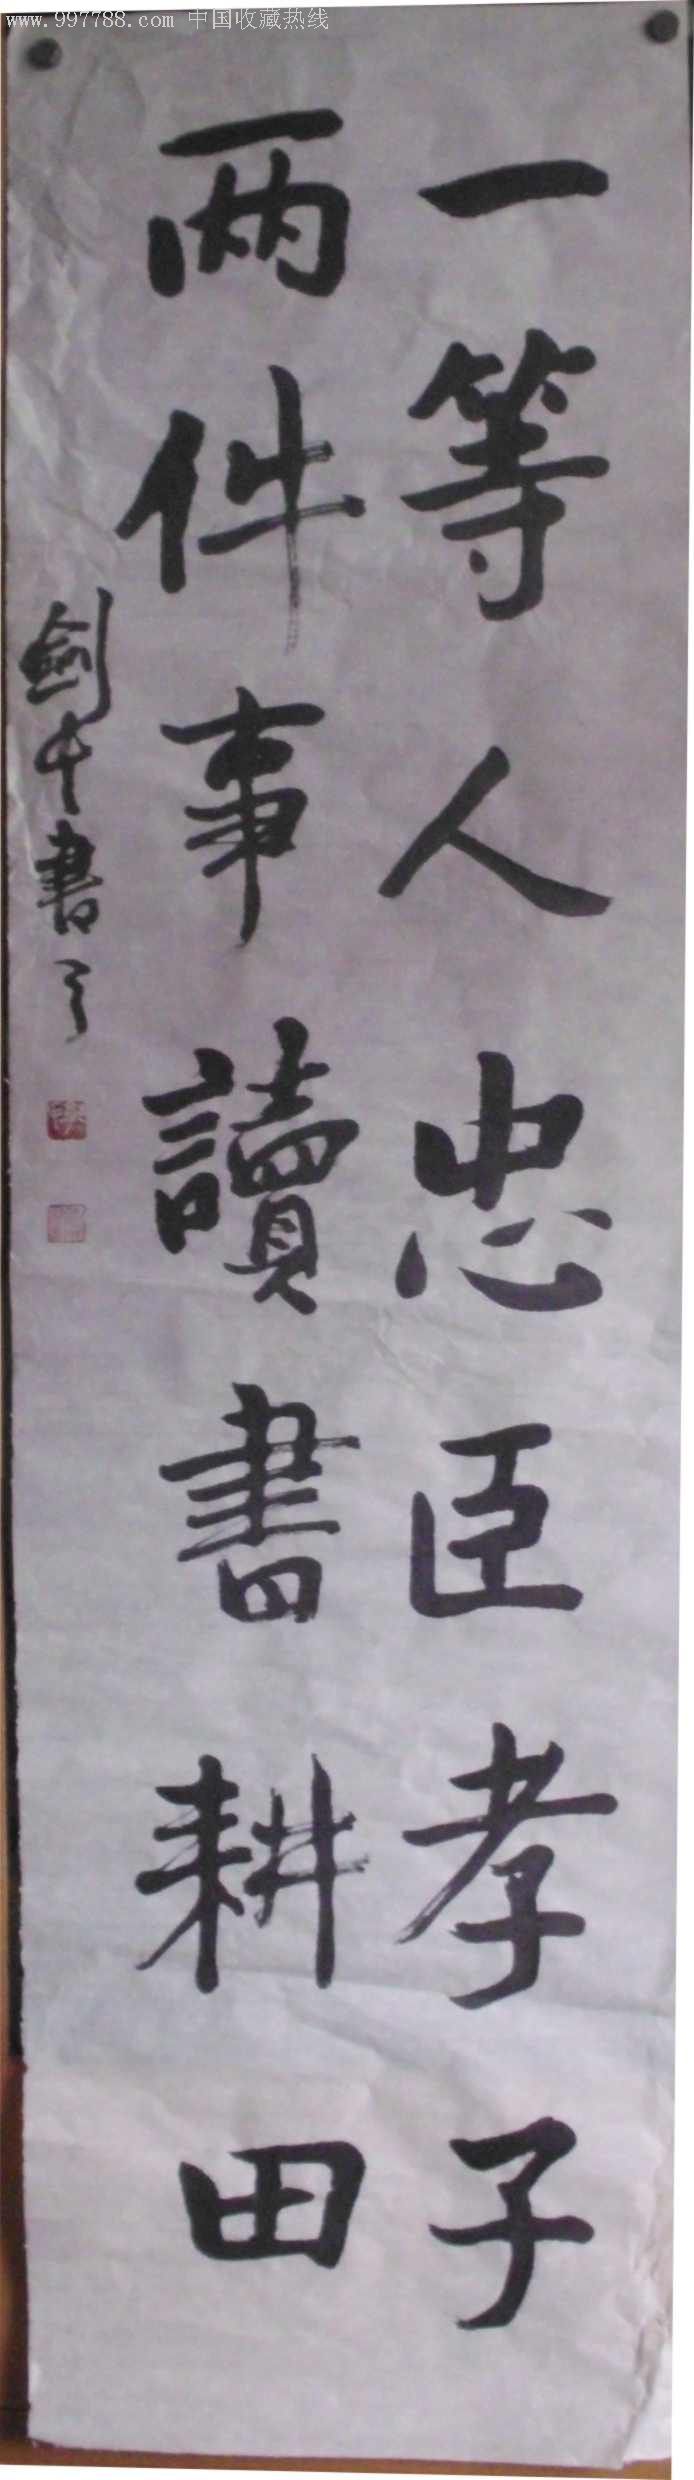 www.997788.com 中国收藏热线
一等人忠臣孝子
两件事讀書耕田
剑书